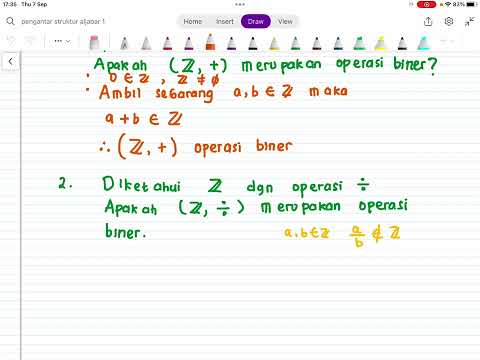 17:35 Thu 7 Sep
83%
pengantar struktur aljabar 1
Home Insert Draw View
Apakah (ℤ, +) merupakan operasi biner?
• 0 ∈ ℤ, ℤ ≠ ∅
• Ambil sebarang a, b ∈ ℤ maka
a + b ∈ ℤ
∴ (ℤ, +) operasi biner
2. Diketahui ℤ dgn operasi ÷
Apakah (ℤ, ÷) merupakan operasi
biner. a, b ∈ ℤ a/b ∉ ℤ